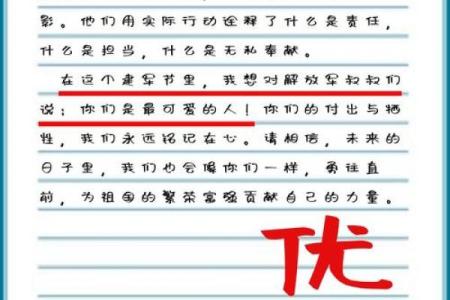 影。他们用实际行动诠释了什么是责任，
什么是担当，什么是无私奉献。
在这个建军节里，我想对解放军叔叔们
说：你们是最可爱的人！你们的付出与牺
牲，我们永远铭记在心。请相信，未来的
日子里，我们也会像你们一样，勇往直
前，为祖国的繁荣富强贡献自己的力量。
优